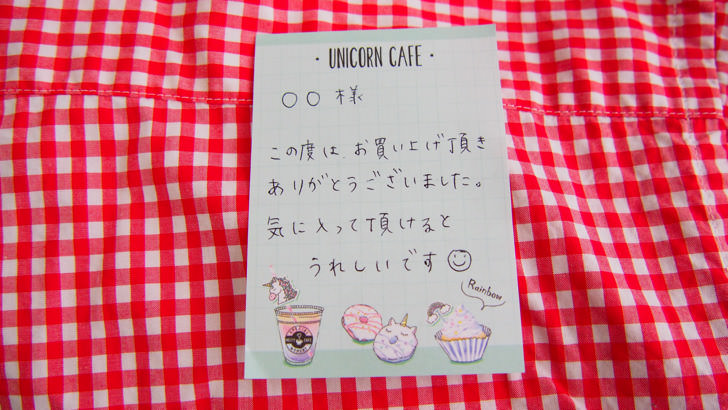 ・UNICORN CAFE・
○○ 様
この度は、お買い上げ頂き
ありがとうございました。
気に入って頂けると
うれしいです
Rainbow